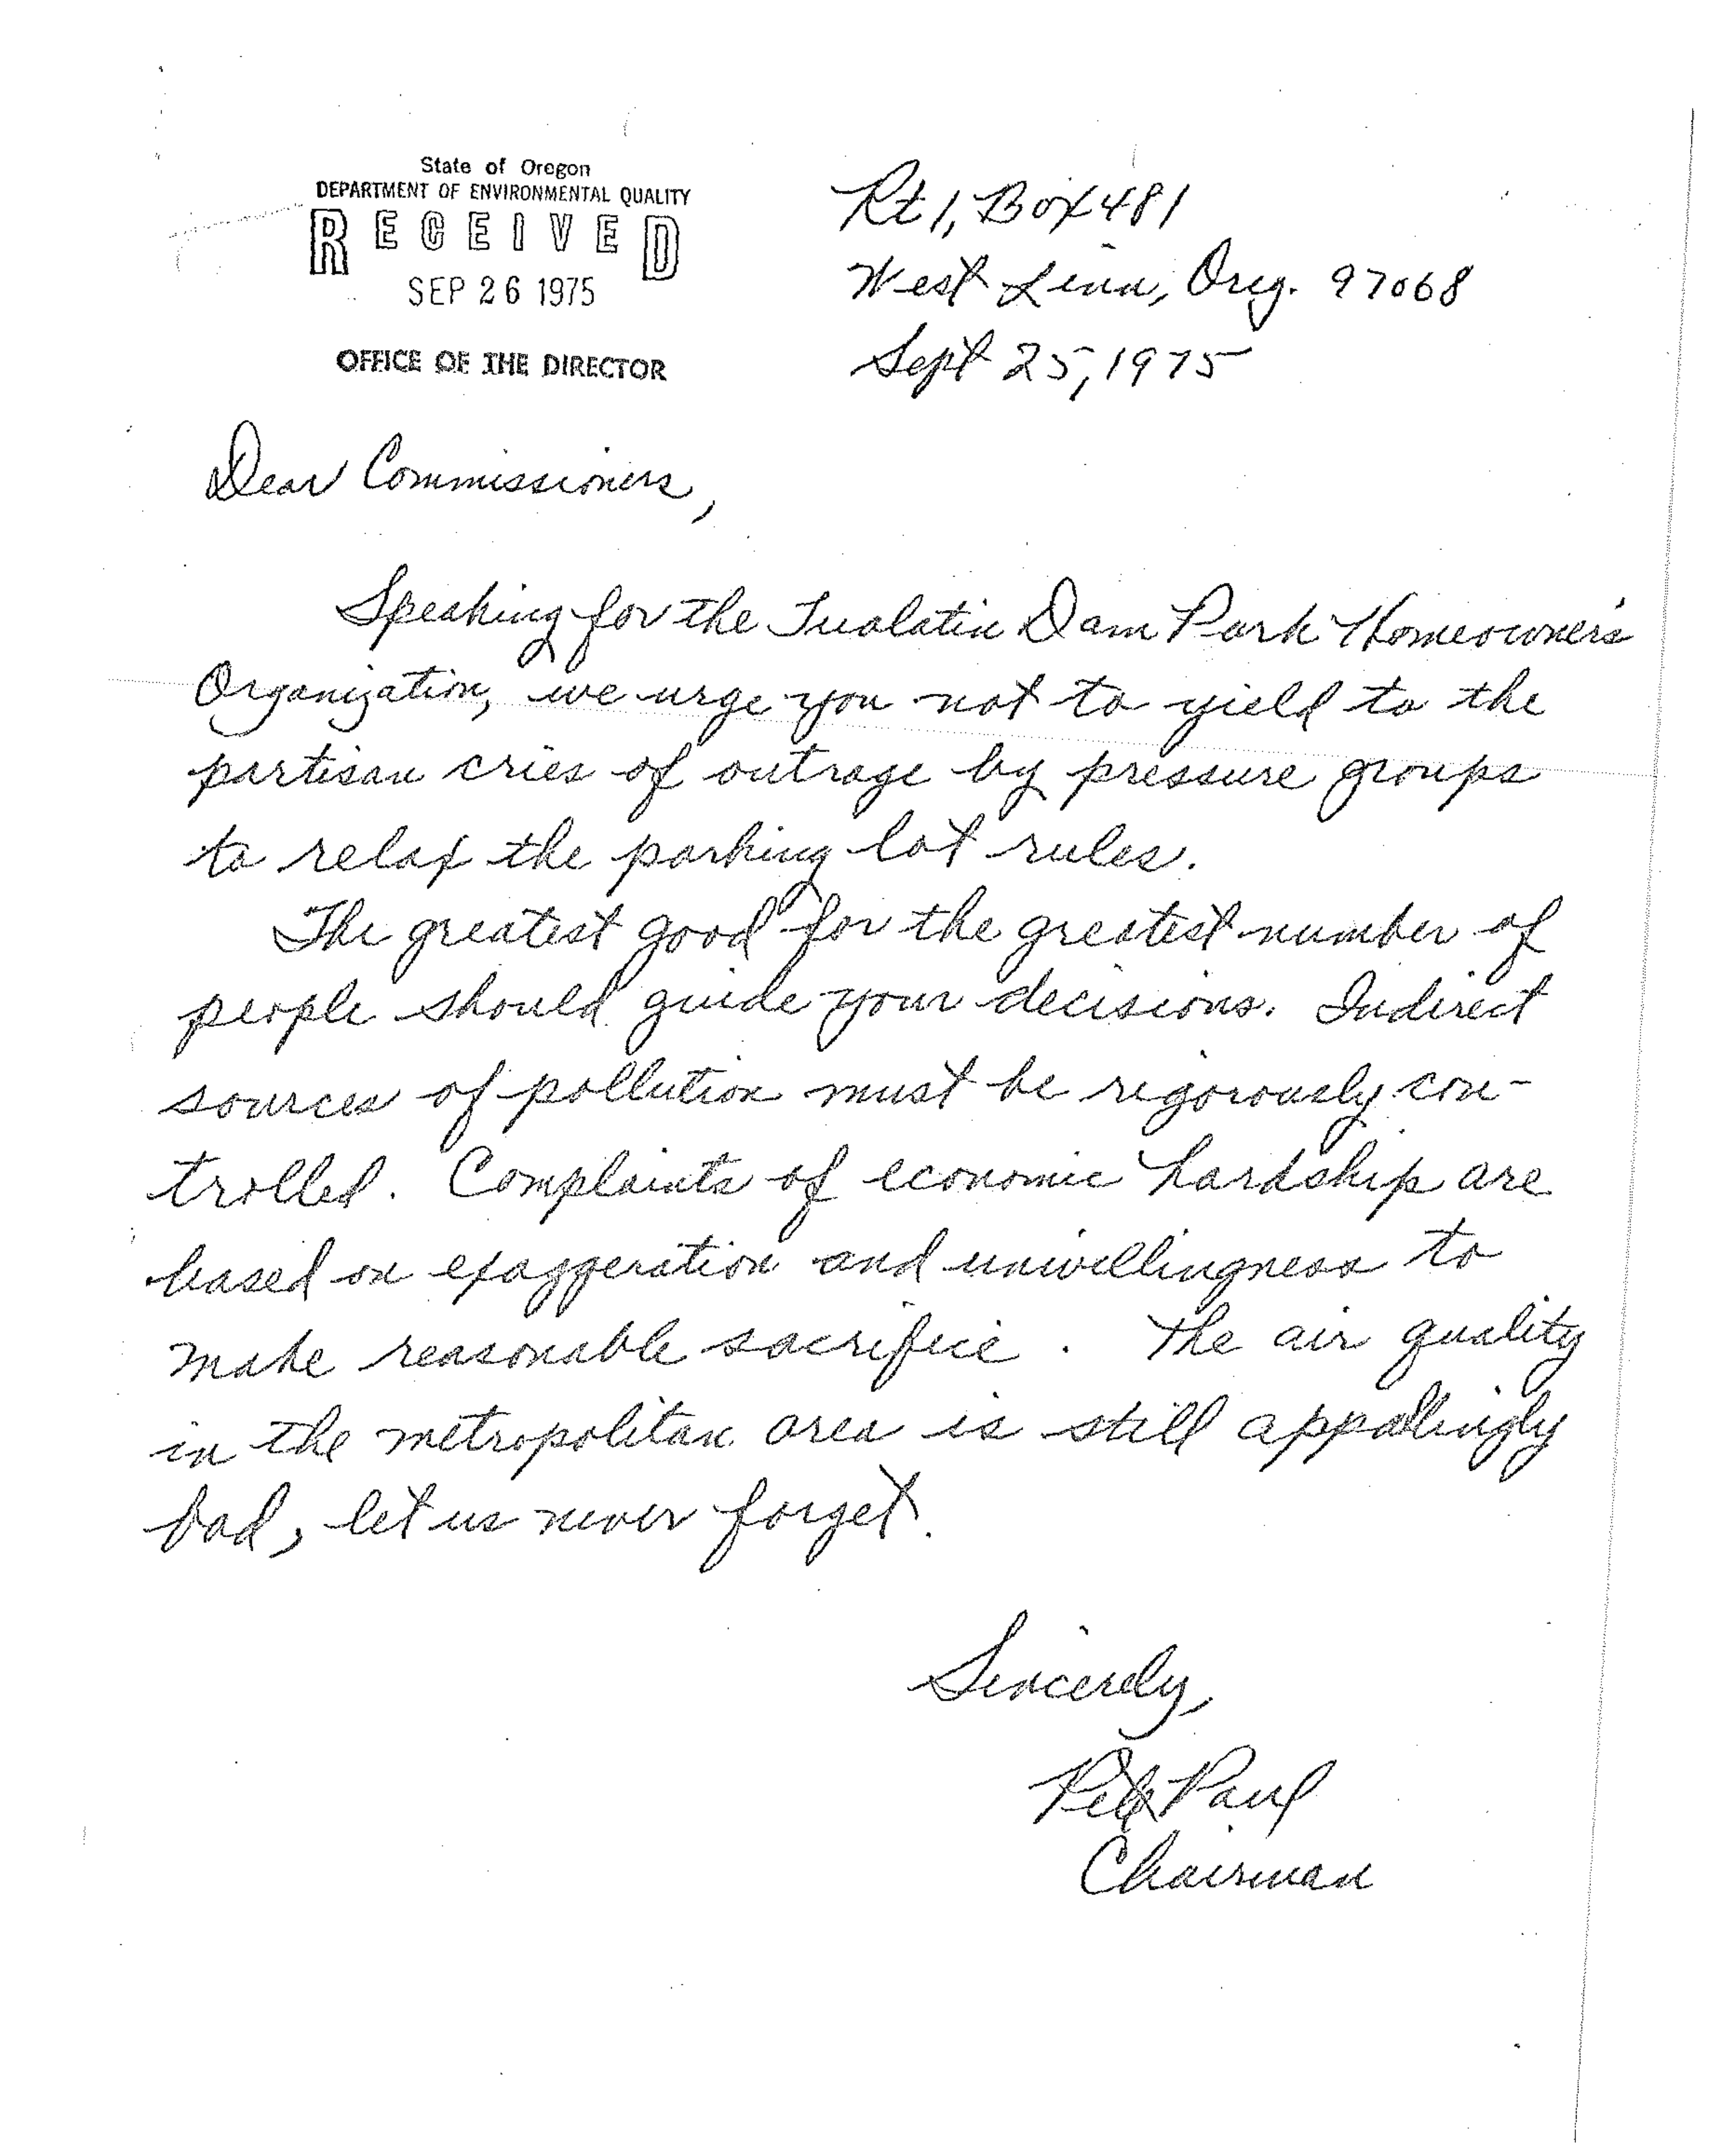 State of Oregon
DEPARTMENT OF ENVIRONMENTAL QUALITY
RECEIVED
SEP 26 1975
OFFICE OF THE DIRECTOR
Rt 1, Box 481
West Linn, Oreg. 97068
Sept 25, 1975
Dear Commissioners,
Speaking for the Tualatin Dam Park Homeowner's
Organization, we urge you not to yield to the
partisan cries of outrage by pressure groups
to relax the parking lot rules.
The greatest good for the greatest number of
people should guide your decisions. Indirect
sources of pollution must be rigorously con-
trolled. Complaints of economic hardship are
based on exaggeration and unwillingness to
make reasonable sacrifice. The air quality
in the metropolitan area is still appallingly
bad, let us never forget.
Sincerely,
Pete Paul
Chairman